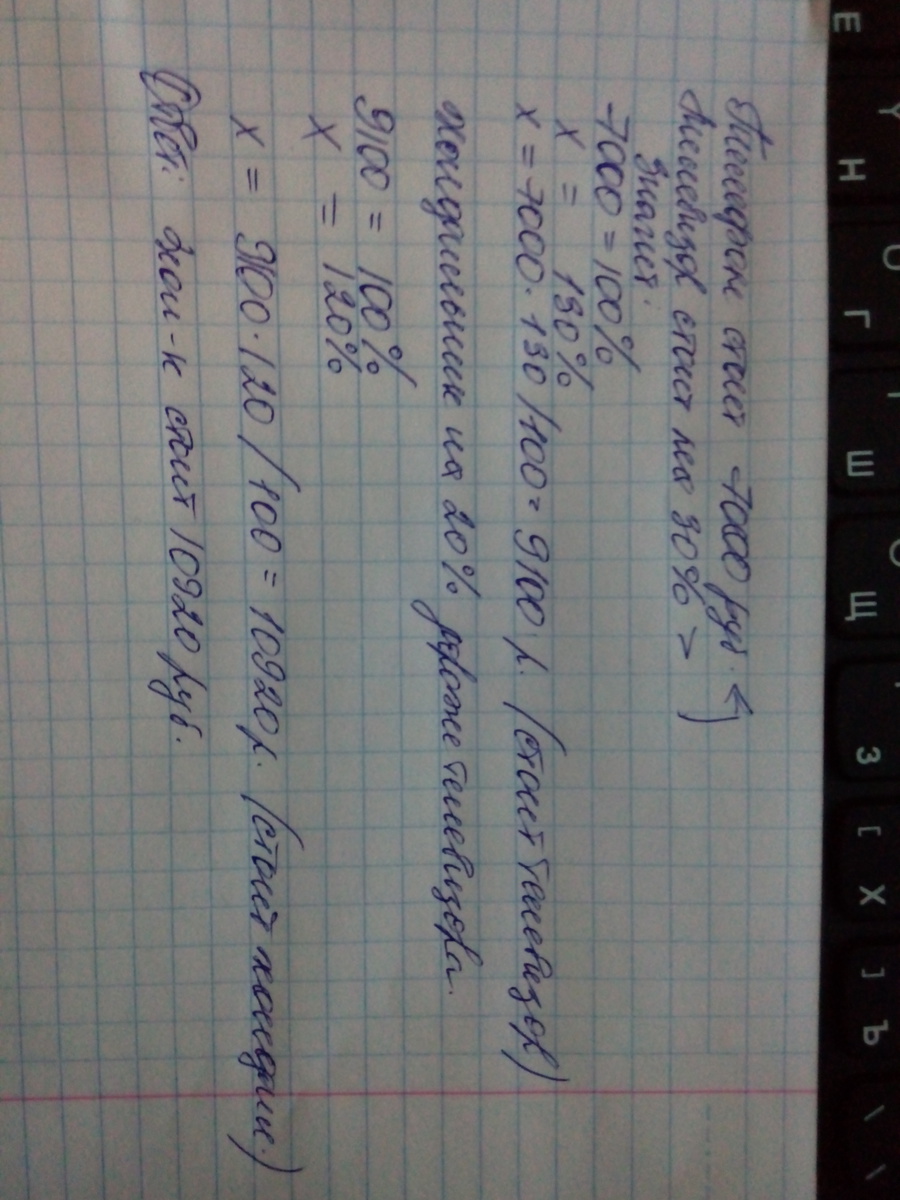 Телефон стоит 7000 руб. ←
Телевизор стоит на 30% >
Значит:
7000 = 100%
х = 130%
х = 7000 · 130 / 100 = 9100 р. (стоит телевизор)
Холодильник на 20% дороже телевизора.
9100 = 100%
х = 120%
х = 9100 · 120 / 100 = 10920 р. (стоит холодил.)
Ответ: хол-к стоит 10920 руб.
Е
Н
Г
Ш
Щ
З
[ Х
] Ъ
\ \